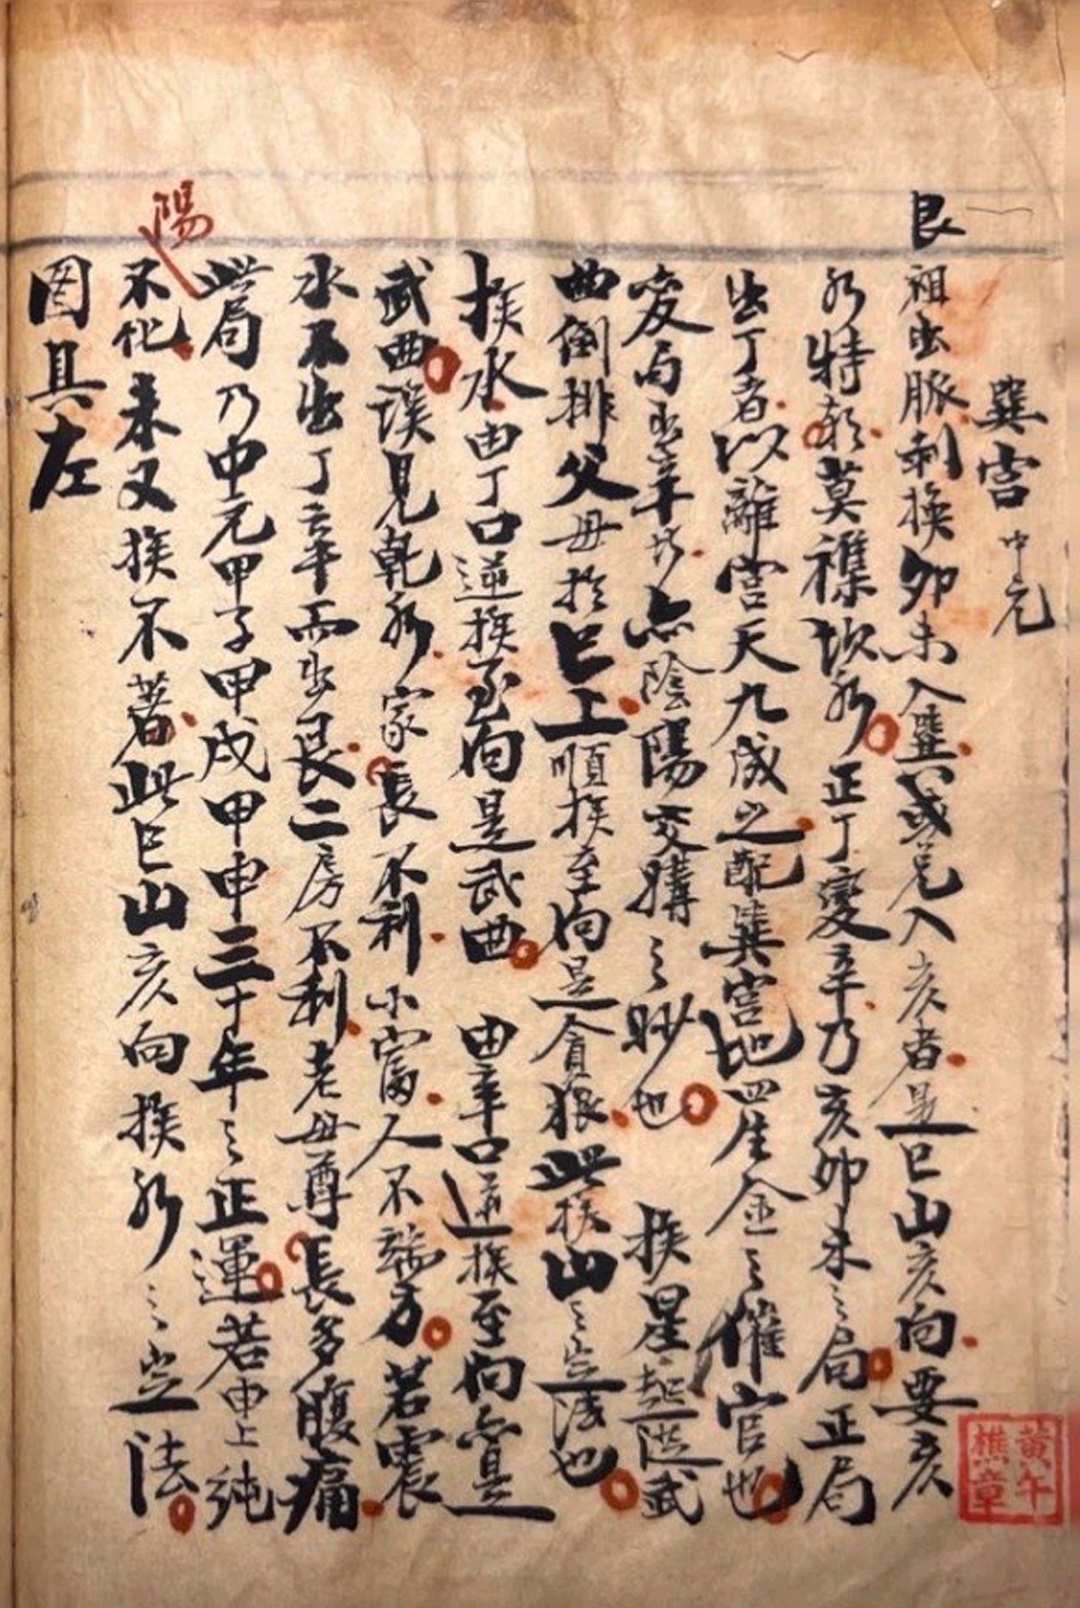 巽宮 中元
艮祖出脈剥換卯未入巽或兑入亥者是巳山亥向要亥
水特朝莫襍坎水正丁變辛乃亥卯未之局正局
出丁者以離宮天九成之配巽宮地四生金之催官也
変而出辛方亦陰陽交媾之妙也 挨星起從武
曲倒排父母於巳上順挨至向是貪狼此挨山之定法也
挨水由丁口逆挨至向是武曲 由辛口逆挨至向亦是
武曲誤見乾水家長不利小富人不端方若震
水不出丁辛而出艮二房不利老母尊長多腹痛
此局乃中元甲子甲戌甲申三十年之正運若中上純
陽
不化未又挨不著此巳山亥向挨水之定法
图具左
黄午樵章